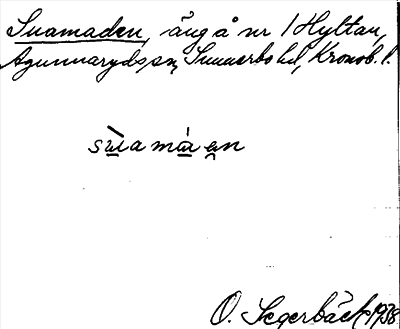 Suamaden, äng å nr 1 Hyltan,
Agunnaryds sn, Sunnerbo hd, Kronob. l.
sùa máən
O. Segerbäck 1938